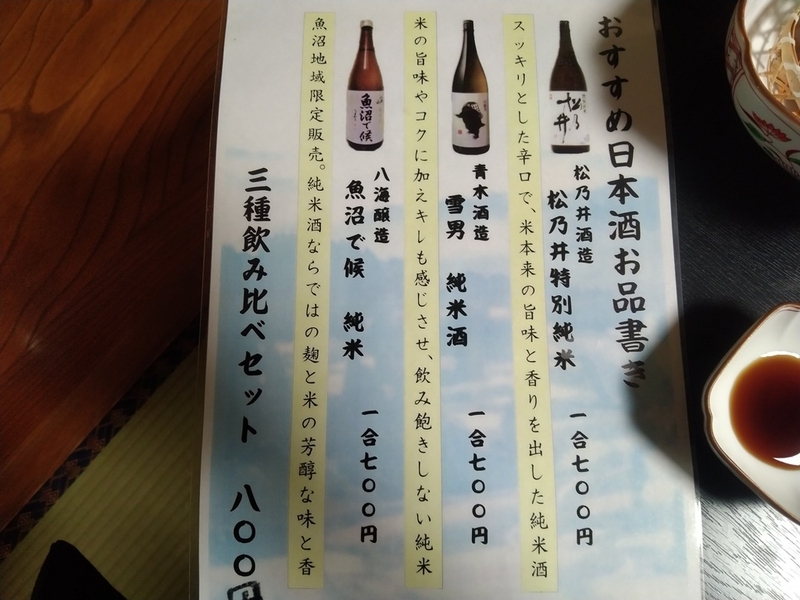 おすすめ日本酒お品書き
松乃井酒造
松乃井特別純米 一合七〇〇円
スッキリとした辛口で、米本来の旨味と香りを出した純米酒
青木酒造
雪男 純米酒 一合七〇〇円
米の旨味やコクに加えキレも感じさせ、飲み飽きしない純米
八海醸造
魚沼で候 純米 一合七〇〇円
魚沼地域限定販売。純米酒ならではの麹と米の芳醇な味と香
三種飲み比べセット 八〇〇円
松乃井
魚沼で候